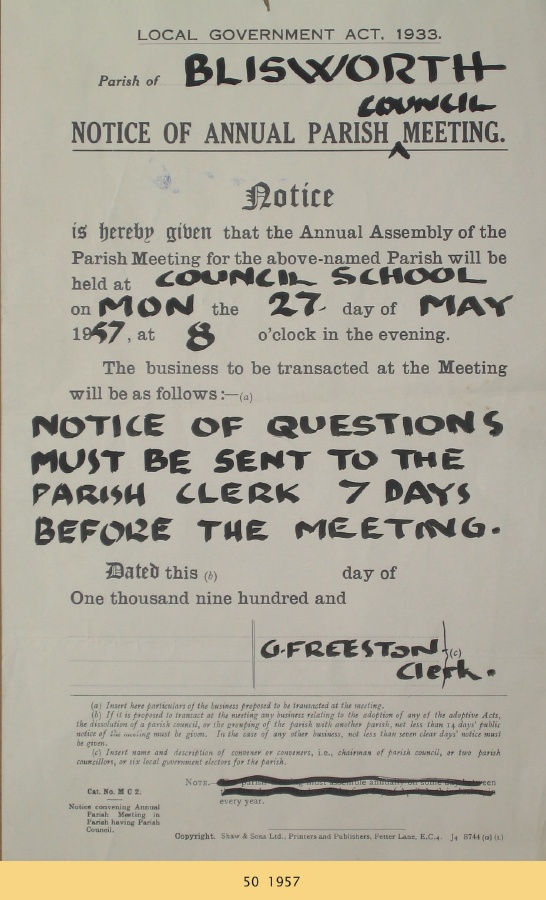 LOCAL GOVERNMENT ACT, 1933.
Parish of BLISWORTH
COUNCIL
NOTICE OF ANNUAL PARISH MEETING.
Notice
is hereby given that the Annual Assembly of the
Parish Meeting for the above-named Parish will be
held at COUNCIL SCHOOL
on MON the 27 day of MAY
1957, at 8 o'clock in the evening.
The business to be transacted at the Meeting
will be as follows:—(a)
NOTICE OF QUESTIONS
MUST BE SENT TO THE
PARISH CLERK 7 DAYS
BEFORE THE MEETING.
Dated this (b) day of
One thousand nine hundred and
G. FREESTON (c)
Clerk.
(a) Insert here particulars of the business proposed to be transacted at the meeting.
(b) If it is proposed to transact at the meeting any business relating to the adoption of any of the adoptive Acts,
the dissolution of a parish council, or the grouping of the parish with another parish, not less than 14 days' public
notice of the meeting must be given. In the case of any other business, not less than seven clear days' notice must
be given.
(c) Insert name and description of convener or conveners, i.e., chairman of parish council, or two parish
councillors, or six local government electors for the parish.
NOTE.— must assemble annually on some day between
every year.
Cat. No. M C 2.
Notice convening Annual
Parish Meeting in
Parish having Parish
Council.
Copyright. Shaw & Sons Ltd., Printers and Publishers, Fetter Lane, E.C.4. J4 8744 (a) (1)
50 1957